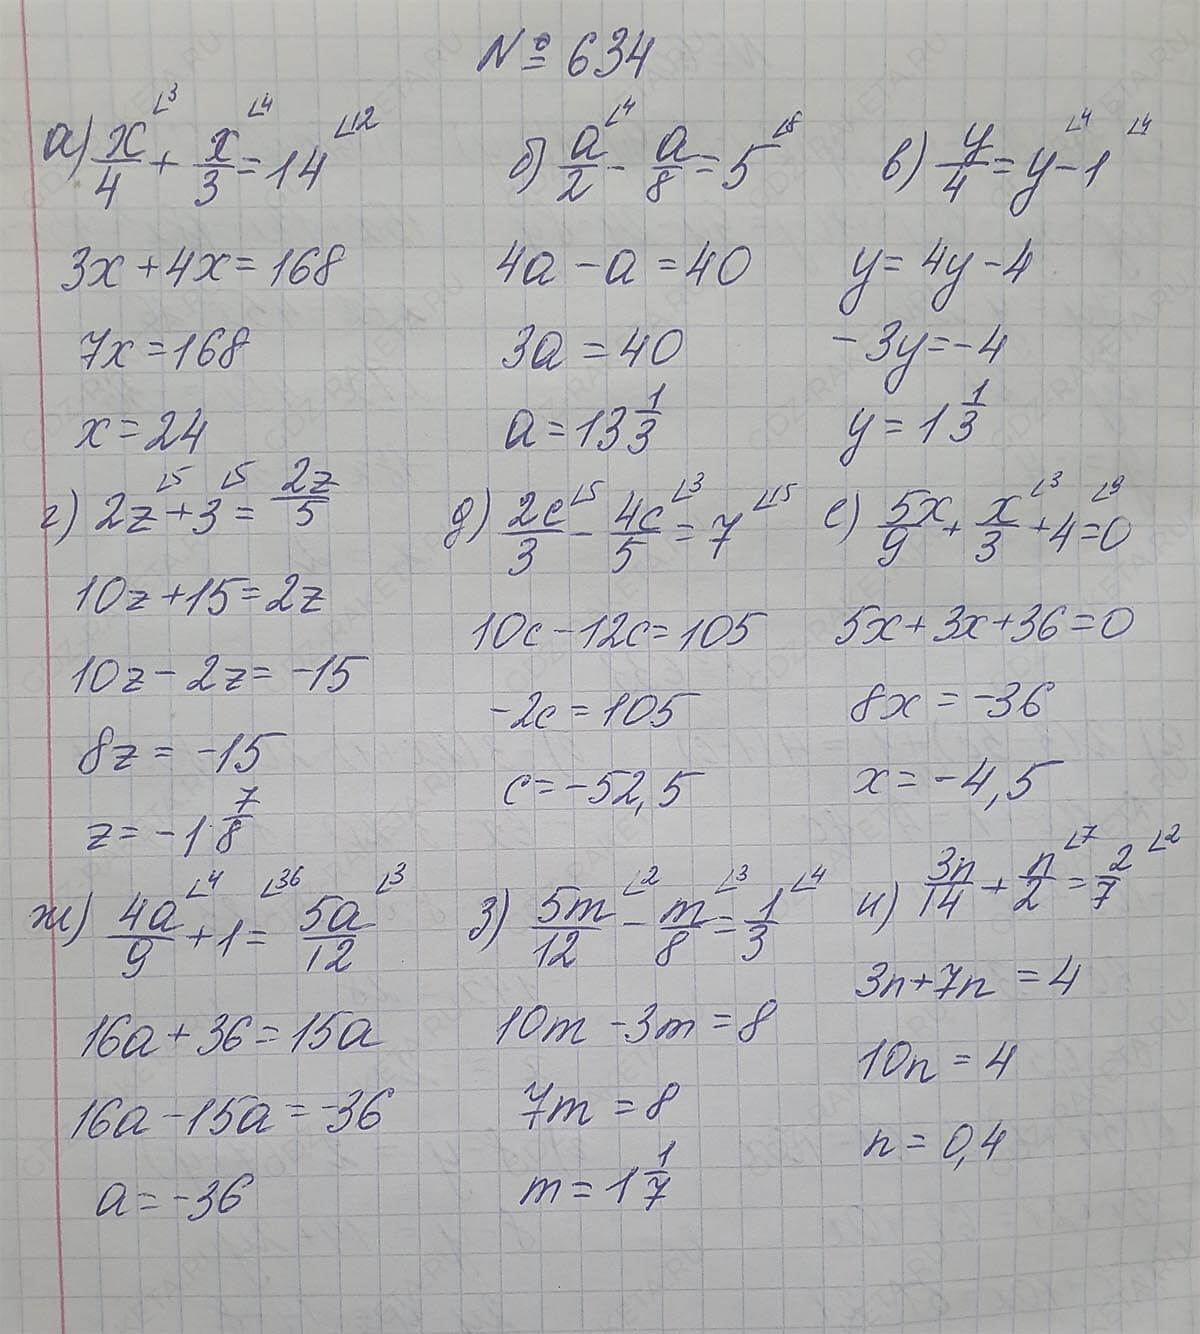 № 634
а) x/4 ∟3 + x/3 ∟4 = 14 ∟12
3x + 4x = 168
7x = 168
x = 24
б) a/2 ∟4 - a/8 = 5 ∟8
4a - a = 40
3a = 40
a = 13 1/3
в) y/4 = y ∟4 - 1 ∟4
y = 4y - 4
-3y = -4
y = 1 1/3
г) 2z ∟5 + 3 ∟5 = 2z/5
10z + 15 = 2z
10z - 2z = -15
8z = -15
z = -1 7/8
д) 2c/3 ∟5 - 4c/5 ∟3 = 7 ∟15
10c - 12c = 105
-2c = 105
c = -52,5
е) 5x/9 + x/3 ∟3 + 4 ∟9 = 0
5x + 3x + 36 = 0
8x = -36
x = -4,5
ж) 4a/9 ∟4 + 1 ∟36 = 5a/12 ∟3
16a + 36 = 15a
16a - 15a = -36
a = -36
з) 5m/12 ∟2 - m/8 ∟3 = 1/3 ∟4
10m - 3m = 8
7m = 8
m = 1 1/7
и) 3n/14 + n/2 ∟7 = 2/7 ∟2
3n + 7n = 4
10n = 4
n = 0,4